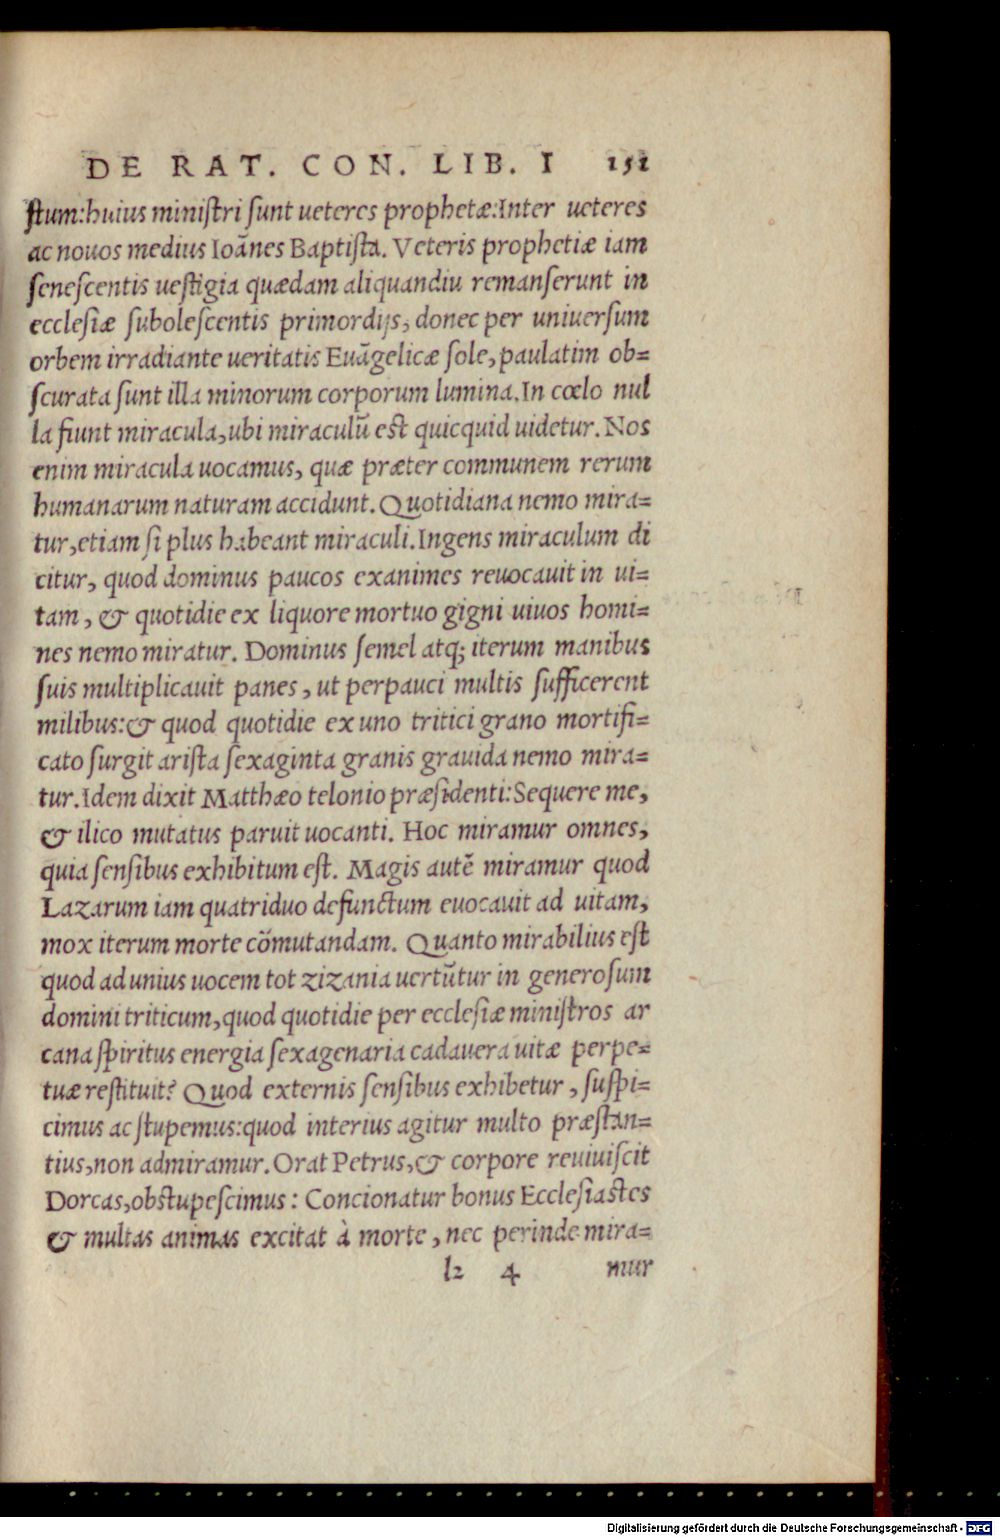 DE RAT. CON. LIB. I 151
stum:huius ministri sunt ueteres prophetæ:Inter ueteres
ac nouos medius Ioãnes Baptista. Veteris prophetiæ iam
senescentis uestigia quædam aliquandiu remanserunt in
ecclesiæ subolescentis primordijs, donec per uniuersum
orbem irradiante ueritatis Euãgelicæ sole, paulatim ob=
scurata sunt illa minorum corporum lumina. In cœlo nul
la fiunt miracula, ubi miraculũ est quicquid uidetur. Nos
enim miracula uocamus, quæ præter communem rerum
humanarum naturam accidunt. Quotidiana nemo mira=
tur, etiam si plus habeant miraculi. Ingens miraculum di
citur, quod dominus paucos exanimes reuocauit in ui=
tam, & quotidie ex liquore mortuo gigni uiuos homi=
nes nemo miratur. Dominus semel atq; iterum manibus
suis multiplicauit panes, ut perpauci multis sufficerent
milibus:& quod quotidie ex uno tritici grano mortifi=
cato surgit arista sexaginta granis grauida nemo mira=
tur. Idem dixit Matthæo telonio præsidenti: Sequere me,
& ilico mutatus paruit uocanti. Hoc miramur omnes,
quia sensibus exhibitum est. Magis autẽ miramur quod
Lazarum iam quatriduo defunctum euocauit ad uitam,
mox iterum morte cõmutandam. Quanto mirabilius est
quod ad unius uocem tot zizania uertũtur in generosum
domini triticum, quod quotidie per ecclesiæ ministros ar
cana spiritus energia sexagenaria cadauera uitæ perpe=
tuæ restituit? Quod externis sensibus exhibetur, suspi=
cimus ac stupemus: quod interius agitur multo præstan=
tius, non admiramur. Orat Petrus, & corpore reuiuiscit
Dorcas, obstupescimus: Concionatur bonus Ecclesiastes
& multas animas excitat à morte, nec perinde mira=
k 4 mur
Digitalisierung gefördert durch die Deutsche Forschungsgemeinschaft - DFG